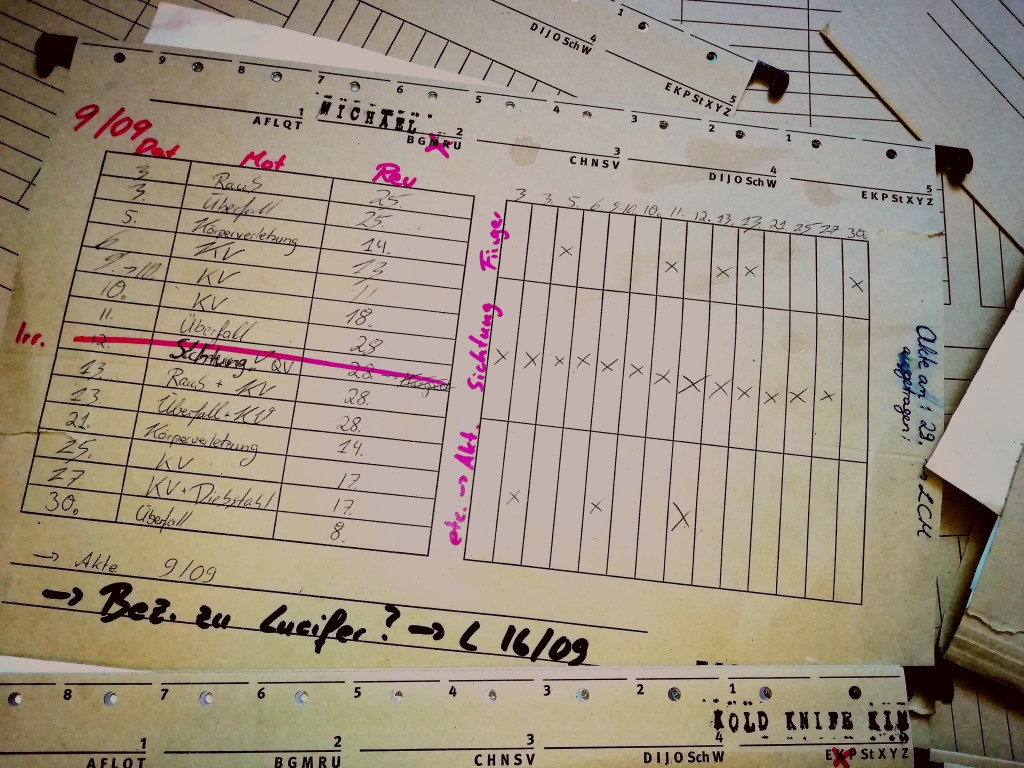 1 4 5
D I J O Sch W
E K P St X Y Z
9 8 7 6 5 4 3 2 1
1 2 3 4 5
A F L Q T
B G M R U
C H N S V
D I J O Sch W
E K P St X Y Z
MICHAEL
9/09
Dat Mot Rev
3 Raus 25
3. Überfall 25.
5. Körperverletzung 14.
6 KV 13
KV 11
10. KV 18.
11. Überfall 28
Irr. 12. Sichtung QV 28.
13 Raus + KV 28
13 Überfall + KV 28.
21. Körperverletzung 14.
25. KV 17
27 KV + Diebstahl 17.
30. Überfall 8.
3 3. 5. 6 9. 10. 10. 11. 12. 13 13 21 25 27 30.
Finger
Sichtung
etc. → Akt.
Akte am: 29.
ausgetragen:
→ Akte 9/09
→ Bez. zu Lucifer? → L 16/09
8 7 6 5 4 3 2 1
KOLD KNIFE KIM
1 2 3 4
A F L Q T
B G M R U
C H N S V
D I J O Sch W
E K P St X Y Z